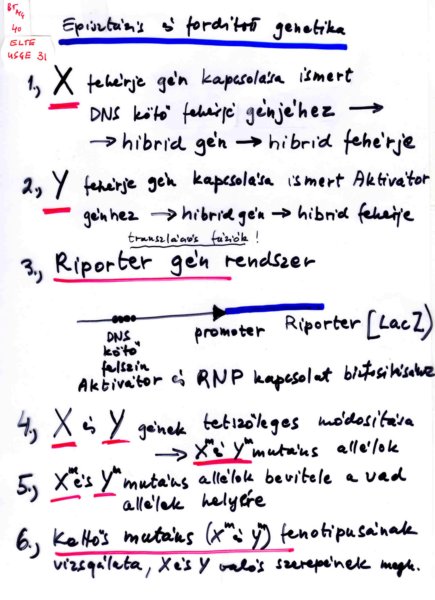 BT
40
ELTE
USGE 31
Episztázis és fordított genetika
1., X fehérje gén kapcsolása ismert
DNS kötő fehérje génjéhez →
→ hibrid gén → hibrid fehérje
2., Y fehérje gén kapcsolása ismert Aktivátor
génhez → hibrid gén → hibrid fehérje
transzlációs fúziók!
3., Riporter gén rendszer
promoter Riporter [LacZ]
DNS
kötő
felszín
Aktivátor és RNP kapcsolat biztosításához
4., X és Y gének tetszőleges módosítása
→ Xᵐ és Yᵐ mutáns allélok
5., Xᵐ és Yᵐ mutáns allélok bevitele a vad
allélek helyére
6., Kettős mutáns (Xᵐ és Yᵐ) fenotipusának
vizsgálata, X és Y valós szerepének megh.